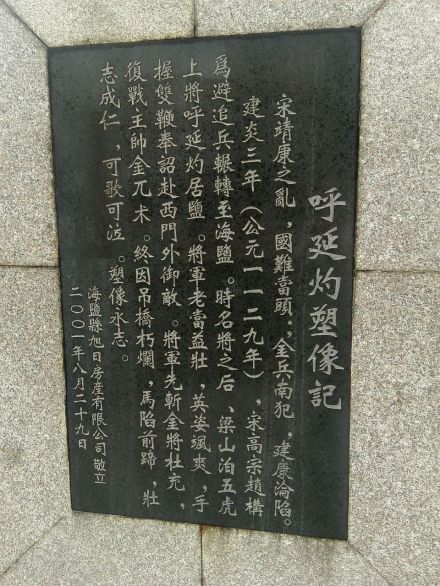 呼延灼塑像記
宋靖康之亂，國難當頭，金兵南犯，建康淪陷。
建炎三年（公元一一二九年），宋高宗趙構
爲避追兵輾轉至海鹽。時名將之后、梁山泊五虎
上將呼延灼居鹽。將軍老當益壯，英姿颯爽，手
握雙鞭奉詔赴西門外御敵。將軍先斬金將杜充，
復戰王帥金兀术。終因吊橋朽爛，馬陷前蹄，壯
志成仁，可歌可泣。塑像永志。
海鹽縣旭日房産有限公司 敬立
二〇〇一年八月二十九日